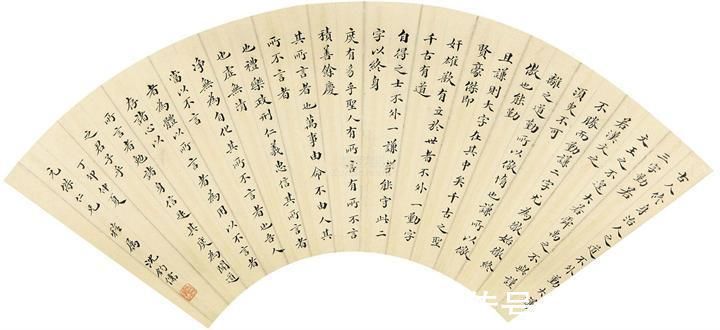 古人修身治人之道不外勤大
三字勤若
文王之不遑大若舜禹之不與謙
若漢文之
不勝而勤謙二字尤為徹始徹終
須臾不可
離之道勤所以儆惰也謙所以儆
傲也能勤
且謙則大字在其中矣千古之聖
賢豪傑即
奸雄欲有立於世者不外一勤字
千古有道
自得之士不外一謙字能守此二
字以終身
庶有豸乎聖人有所言有所不言
積善餘慶
其所言者也萬事由命不由人其
所不言者
也禮樂政刑仁義忠信其所言者
也虛無清
淨無為自化其所不言者也吾人
當以不言
者為體以所言者為用以不言者
存諸心以
所言者勉諸身其庶為聞道
之君子乎
丁卯仲夏
仁兄 雅屬 沈鈞儒